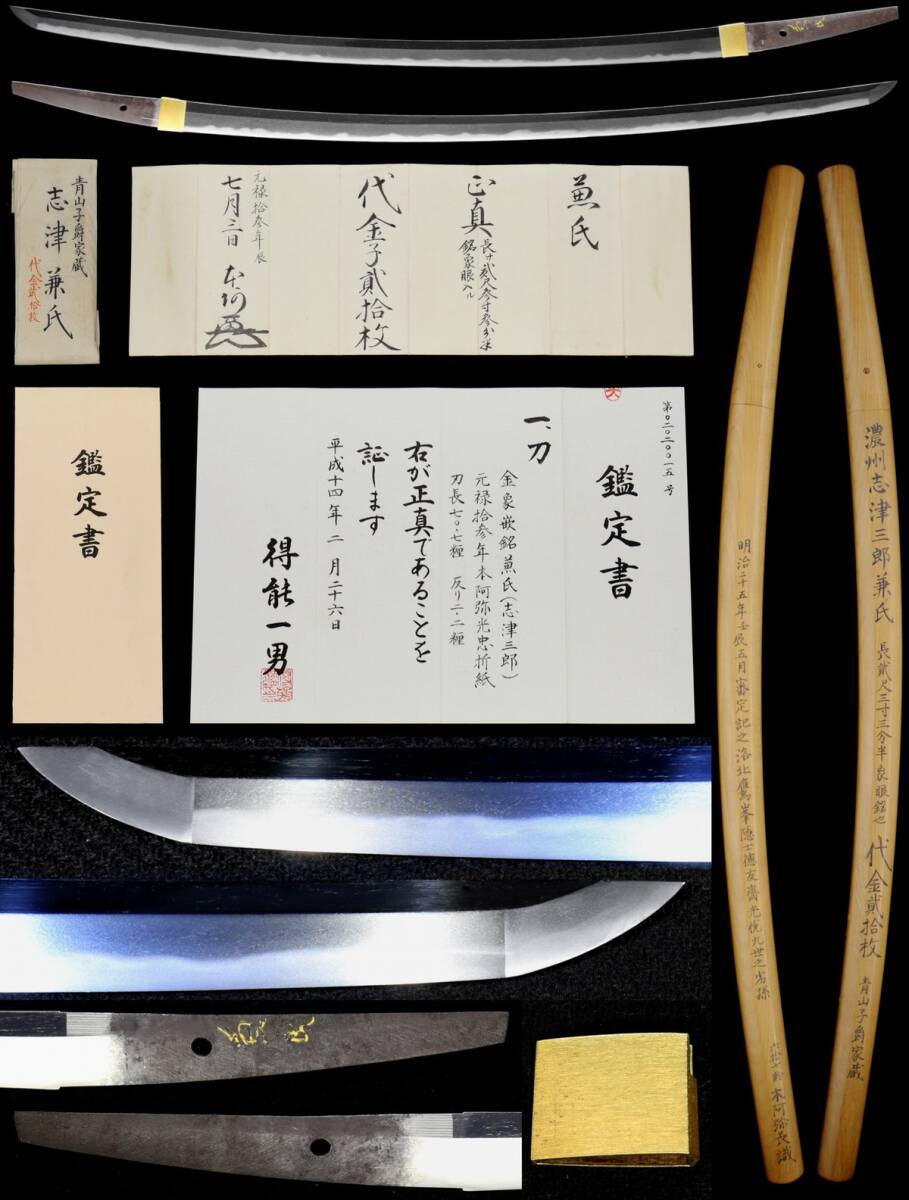 兼氏
正真
長サ貳尺参寸参分半
銘象眼入ル
代金子貳拾枚
元禄拾参年辰
七月三日
本阿
青山子爵家蔵
志津兼氏
代金貳拾枚
第〇二〇二〇〇一五号
鑑定書
一、刀
金象嵌銘兼氏(志津三郎)
元禄拾参年本阿弥光忠折紙
刃長七〇・七糎 反り二・二糎
右が正真であることを
証します
平成十四年 二 月二十六日
得能一男
鑑定書
濃州志津三郎兼氏 長貮尺三寸三分半象眼銘也 代金貮拾枚 青山子爵家蔵
明治二十五年壬辰五月審定記之洛北鷹峯隠士
本阿弥長識